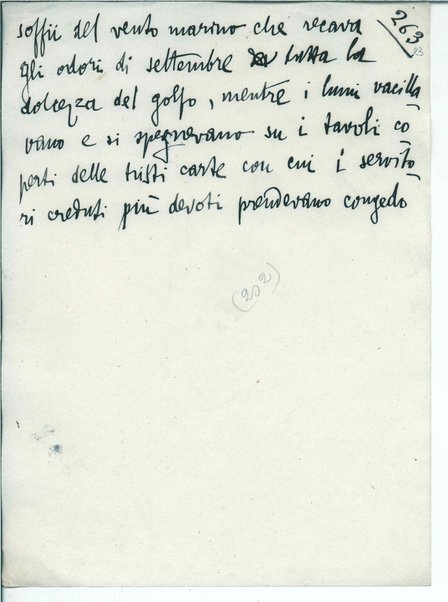 263
23
soffii del vento marino che recava
gli odori di settembre tutta la
dolcezza del golfo, mentre i lumi vacilla
vano e si spegnevano su i tavoli co
perti delle tristi carte con cui i servito
ri creduti più devoti prendevano congedo
(202)